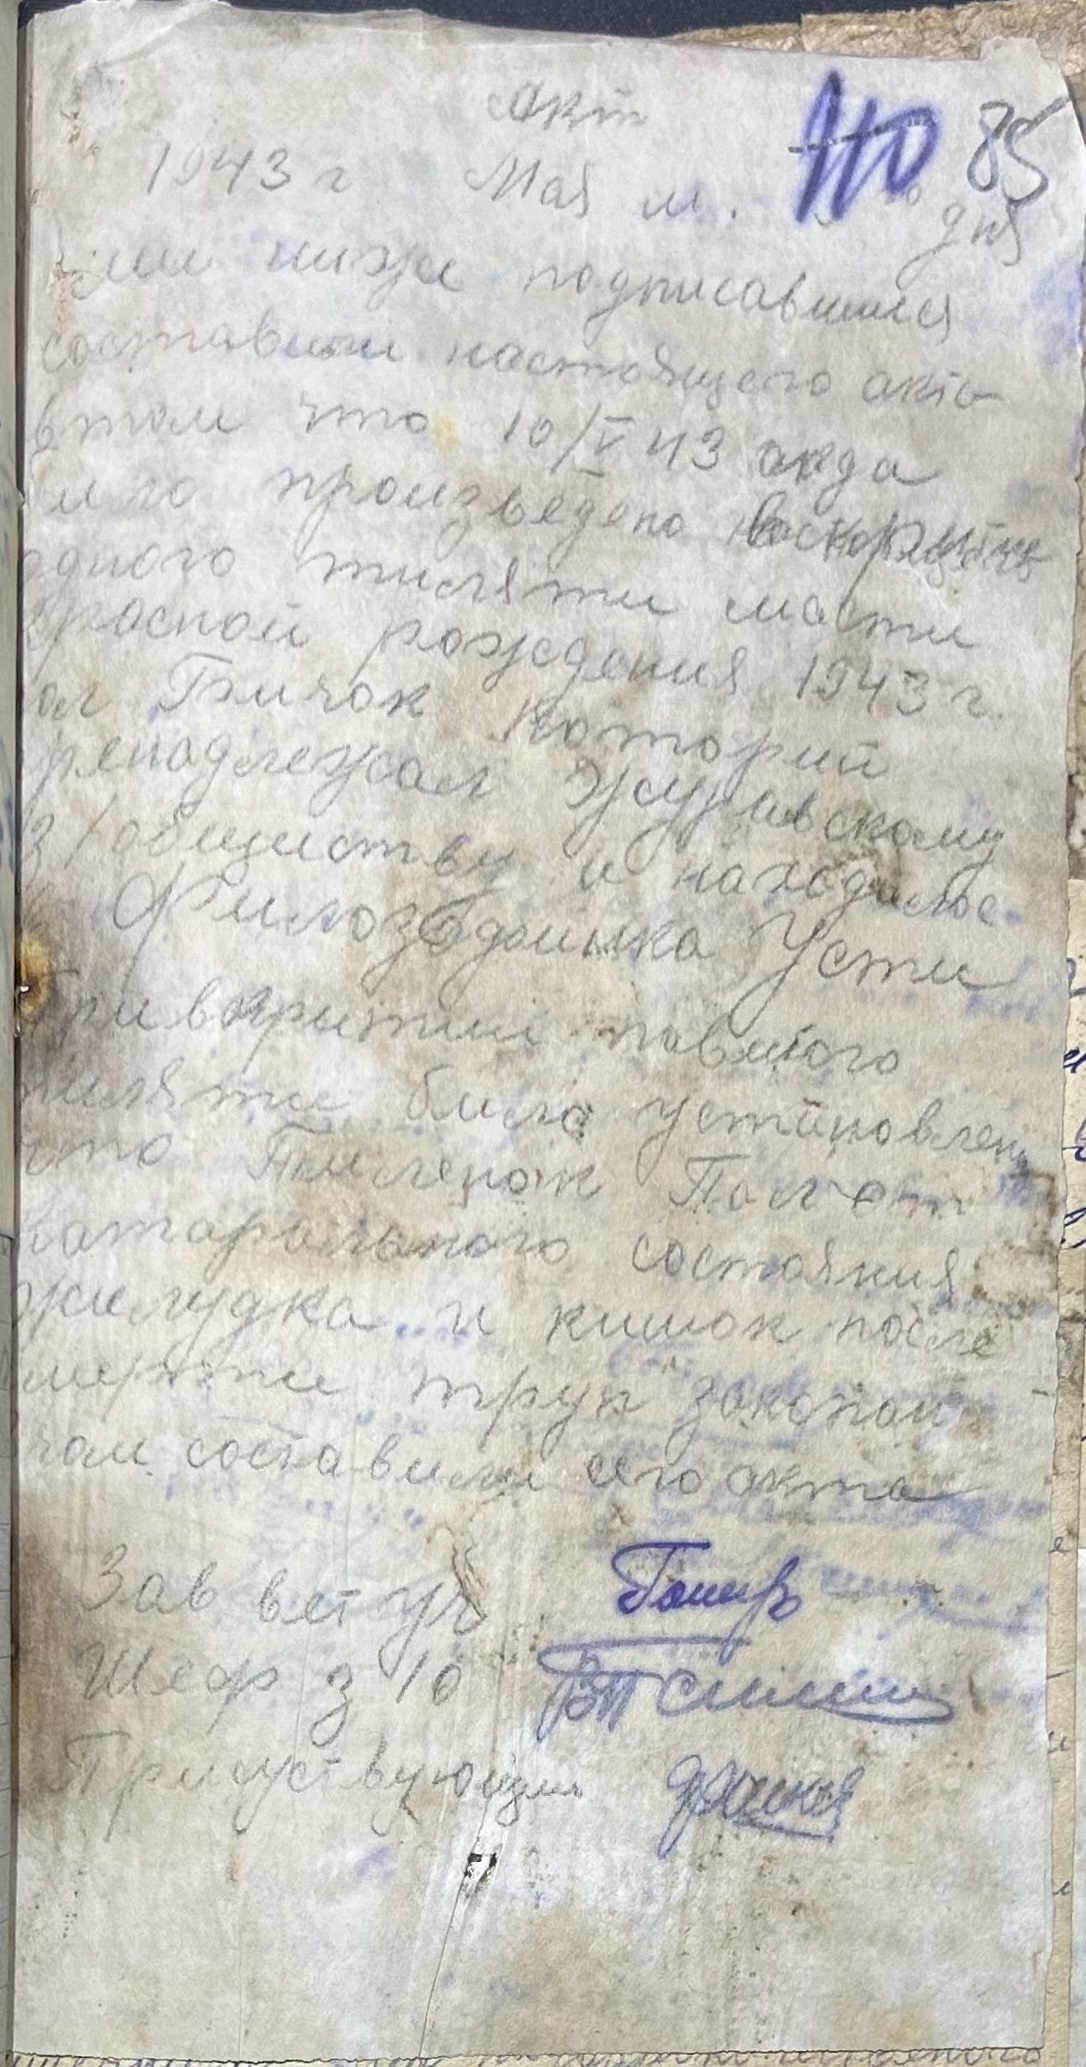 Акт
110 85
1943 г Мая м. дня
ми ниже подписавшися
составили настоящего акта
втом что 10/V 43 года
мго произведено вскритие
одного тиляти масти
красной рождения 1943 г.
ол Бичок которий
ренадлежал Журивскому
з/обществу и находилос
Филозодринка Усти
При вкритии павшого
тиляти било установлено
что Тиленок Пал от
катарального состояния
жилудка и кишок после
мерти труп закопан
чом составили сего акта
Зав вет уч
Шеф з/о
Присуствующия